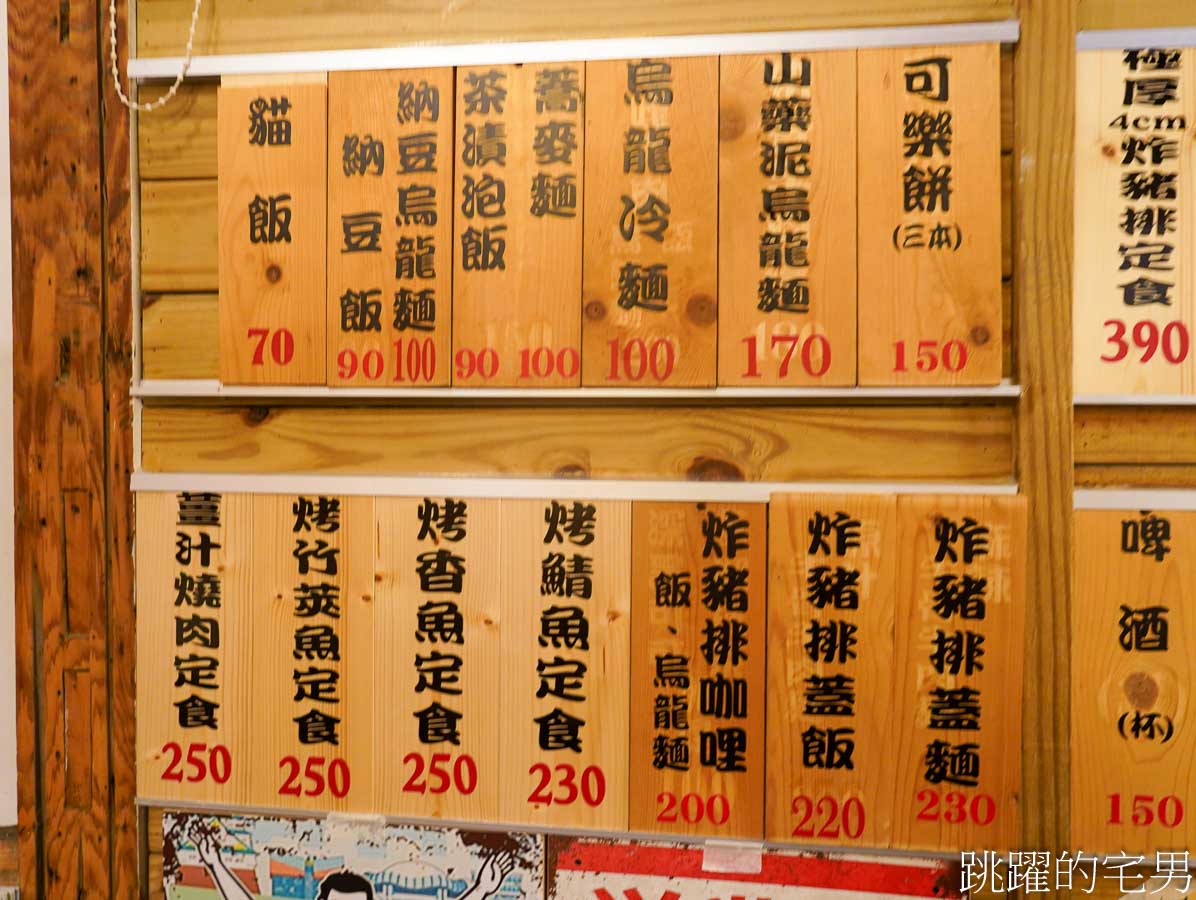 貓飯
70
納豆烏龍麵
100
納豆飯
90
蕎麥麵
100
茶漬泡飯
90
烏龍冷麵
100
山藥泥烏龍麵
170
可樂餅
(三本)
150
極厚4cm炸豬排定食
390
薑汁燒肉定食
250
烤竹莢魚定食
250
烤香魚定食
250
烤鯖魚定食
230
炸豬排咖哩
飯、烏龍麵
200
炸豬排蓋飯
220
炸豬排蓋麵
230
啤酒
(杯)
150
跳躍的宅男